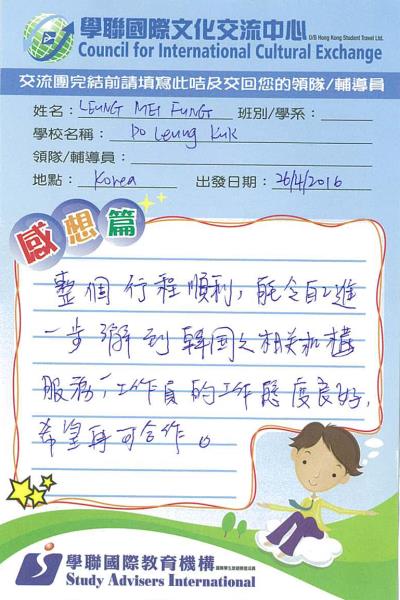 學聯國際文化交流中心 D/B Hong Kong Student Travel Ltd.
Council for International Cultural Exchange
交流團完結前請填寫此咭及交回您的領隊/輔導員
姓名: LEUNG MEI FUNG 班別/學系:
學校名稱: Po Leung Kuk
領隊/輔導員:
地點: Korea 出發日期: 26/4/2016
感想篇
整個行程順利, 能令自己進
一步了解到韓国之相关机構
服務, 工作員的工作態度良好,
希望再可合作。
學聯國際教育機構
Study Advisers International